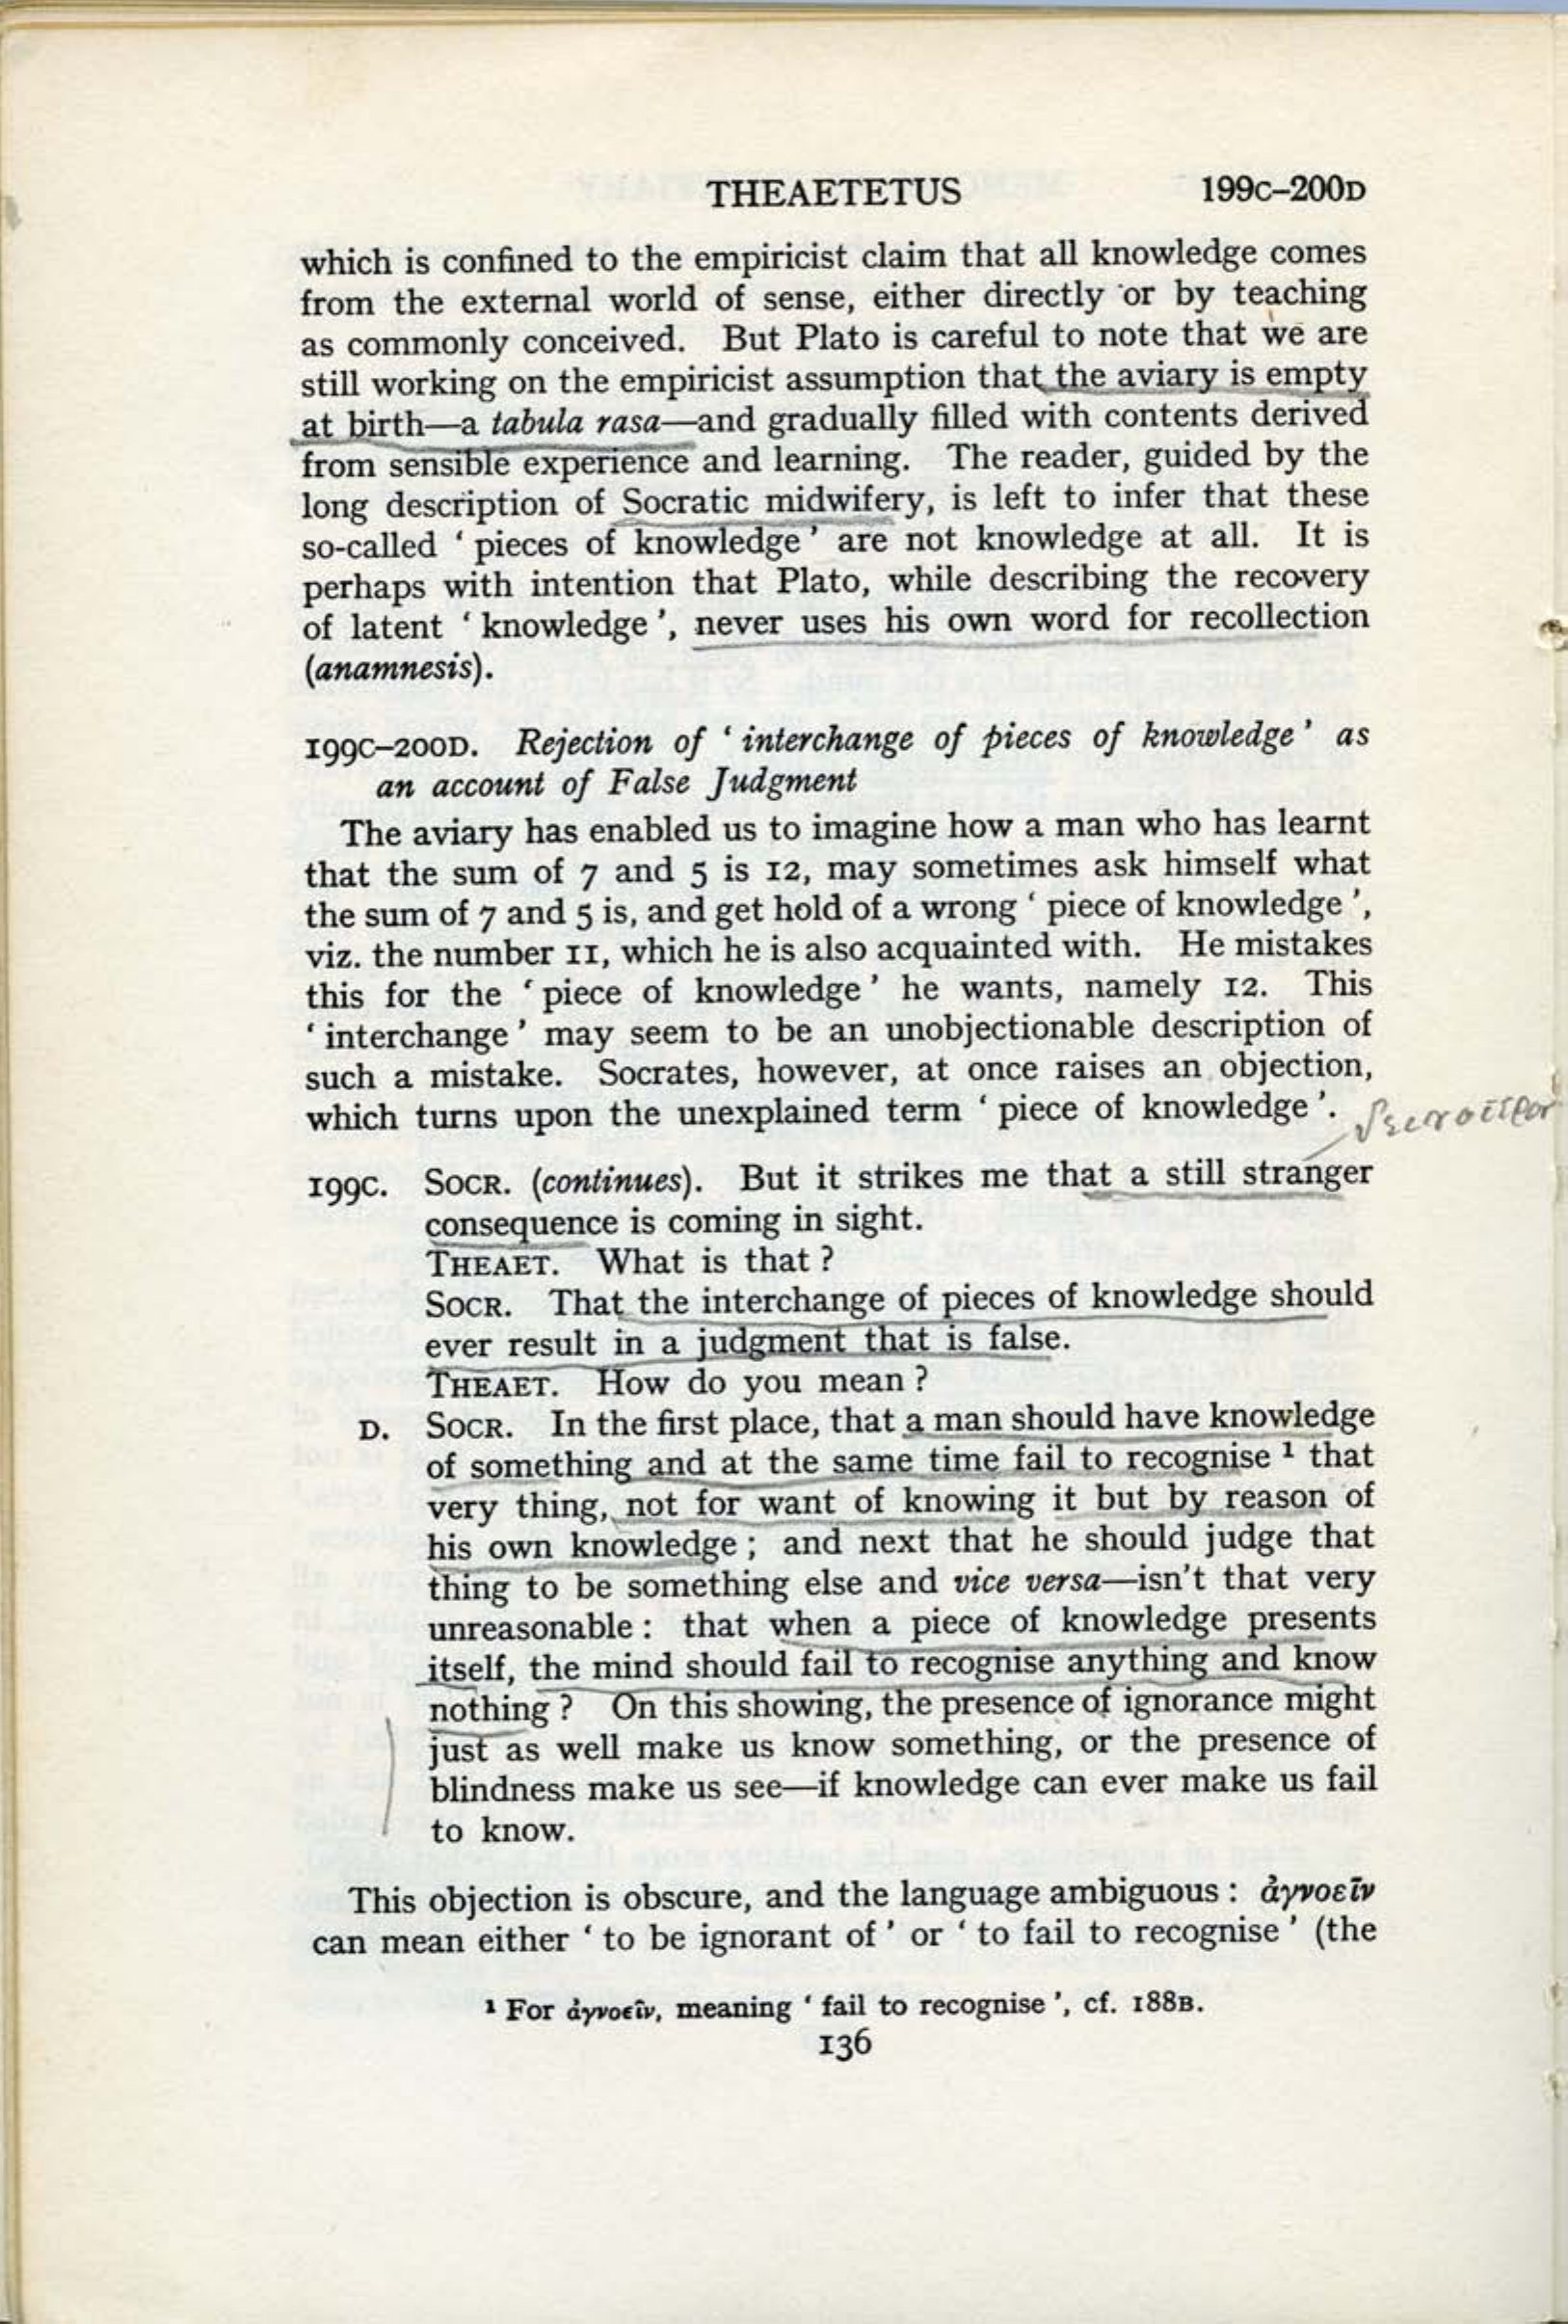 THEAETETUS 199C–200D
which is confined to the empiricist claim that all knowledge comes
from the external world of sense, either directly or by teaching
as commonly conceived. But Plato is careful to note that we are
still working on the empiricist assumption that the aviary is empty
at birth—a tabula rasa—and gradually filled with contents derived
from sensible experience and learning. The reader, guided by the
long description of Socratic midwifery, is left to infer that these
so-called ‘ pieces of knowledge ’ are not knowledge at all. It is
perhaps with intention that Plato, while describing the recovery
of latent ‘ knowledge ’, never uses his own word for recollection
(anamnesis).
199C–200D. Rejection of ‘ interchange of pieces of knowledge ’ as
an account of False Judgment
The aviary has enabled us to imagine how a man who has learnt
that the sum of 7 and 5 is 12, may sometimes ask himself what
the sum of 7 and 5 is, and get hold of a wrong ‘ piece of knowledge ’,
viz. the number 11, which he is also acquainted with. He mistakes
this for the ‘ piece of knowledge ’ he wants, namely 12. This
‘ interchange ’ may seem to be an unobjectionable description of
such a mistake. Socrates, however, at once raises an objection,
which turns upon the unexplained term ‘ piece of knowledge ’.
199C. SOCR. (continues). But it strikes me that a still stranger
consequence is coming in sight.
THEAET. What is that ?
SOCR. That the interchange of pieces of knowledge should
ever result in a judgment that is false.
THEAET. How do you mean ?
D. SOCR. In the first place, that a man should have knowledge
of something and at the same time fail to recognise ¹ that
very thing, not for want of knowing it but by reason of
his own knowledge ; and next that he should judge that
thing to be something else and vice versa—isn't that very
unreasonable : that when a piece of knowledge presents
itself, the mind should fail to recognise anything and know
nothing ? On this showing, the presence of ignorance might
just as well make us know something, or the presence of
blindness make us see—if knowledge can ever make us fail
to know.
This objection is obscure, and the language ambiguous : ἀγνοεῖν
can mean either ‘ to be ignorant of ’ or ‘ to fail to recognise ’ (the
¹ For ἀγνοεῖν, meaning ‘ fail to recognise ’, cf. 188B.
136